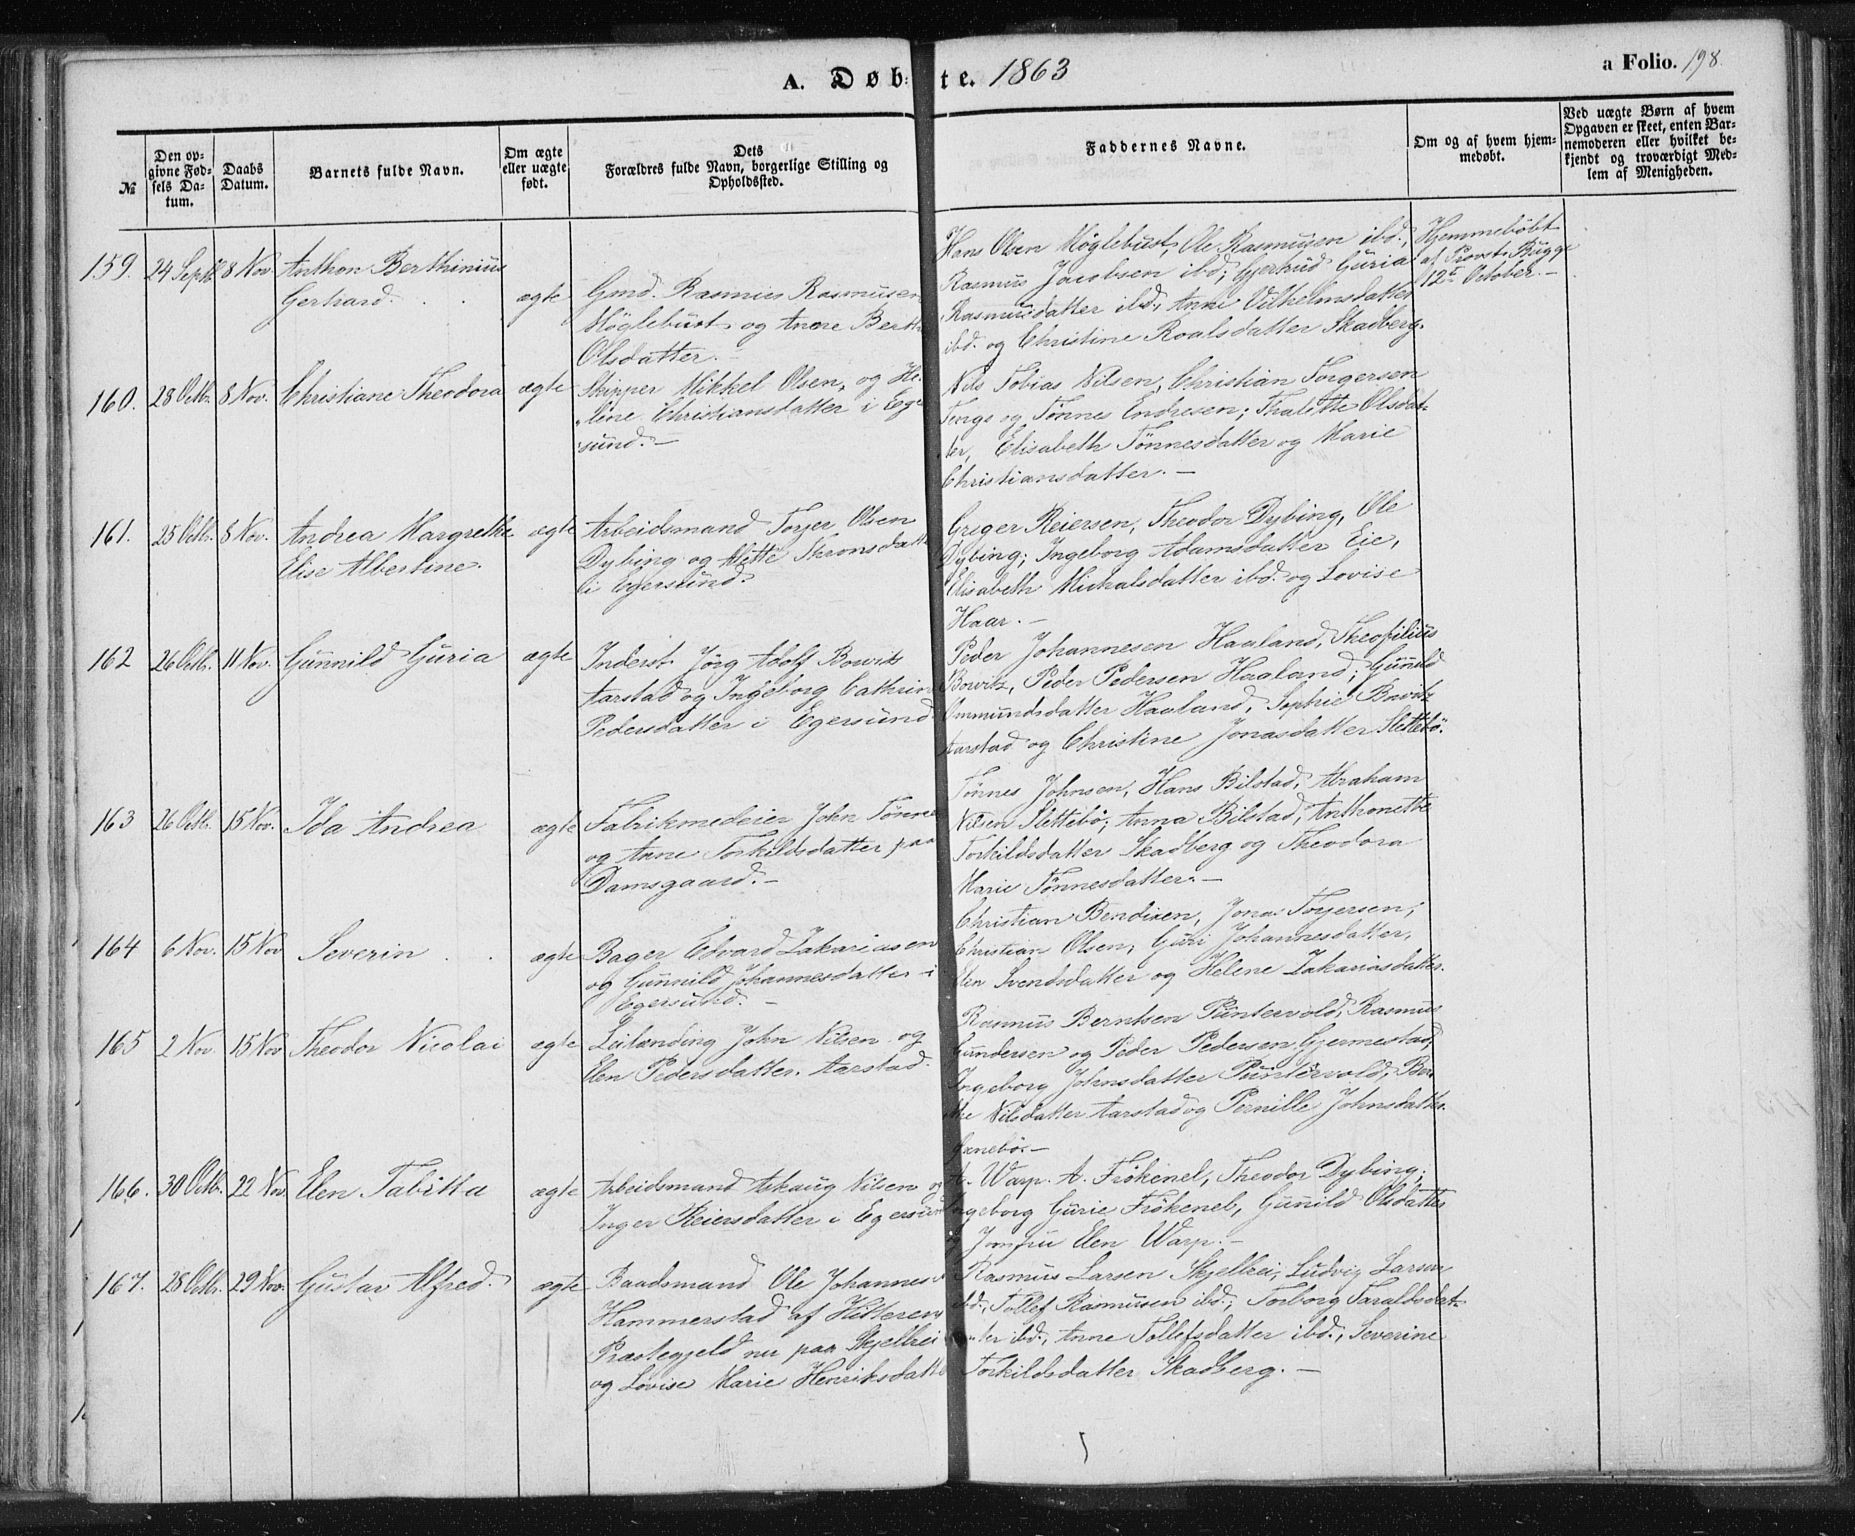 A. Døbte. 1863
a Folio. 198.
№
Den op-
givne Fød-
sels Da-
tum.
Daabs
Datum.
Barnets fulde Navn.
Om ægte
eller uægte
født.
Dets
Forældres fulde Navn, borgerlige Stilling og
Opholdssted.
Faddernes Navne.
Om og af hvem hjem-
medøbt.
Ved uægte Børn af hvem
Opgaven er skeet, enten Bar-
nemoderen eller hvilket be-
kjendt og troværdigt Med-
lem af Menigheden.
159. 24 Septb. 8 Nov. Anthon Berthinius
Gerhard. ægte
Gmd. Rasmus Rasmusen
Møglebust og Anne Berthe
Olsdatter.
Hans Olsen Møglebust, Ole Rasmusen ibd.,
Rasmus Jacobsen ibd; Gjertrud Guria
Rasmusdatter ibd., Anne Vilhelmsdatter
ibd. og Christine Roalsdatter Skadberg.
Hjemmedöbt
af Provst Bugge
12te October.
160. 28 Octb. 8 Nov. Christiane Theodora ægte
Skipper Mikkel Olsen, og He-
lene Christiansdatter i Eger-
sund.
Nils Tobias Nilsen, Christian Torgersen
Tengs og Tønnes Endresen; Thalitte Olsdat-
ter, Elisabeth Tønnesdatter og Marie
Christiansdatter.
161. 25 Octb. 8 Nov. Andrea Margrethe
Elise Albertine. ægte
Arbeidsmand Torjer Olsen
Dybing og Mette Thronsdatter
i Egersund.
Greger Reiersen, Theodor Dybing, Ole
Dybing; Ingeborg Adamsdatter Eie,
Elisabeth Michalsdatter ibd. og Lovise
Haar.
162 26 Octb. 11 Nov. Gunnild Guria ægte
Inderst Jörg Adolf Bowitz
Aarstad og Ingeborg Cathrine
Pedersdatter i Egersund
Peder Johannesen Haaland, Theofilius
Bowitz, Peder Pedersen Haaland; Gunild
Ommundsdatter Haaland, Sophie Bowitz
Aarstad og Christine Jonasdatter Slettebö.
163 26 Octb. 15 Nov. Ida Andrea ægte
Fabrikmedeier John Tønnes
og Anne Torkildsdatter paa
Damsgaard.
Tønnes Johnsen, Hans Bilstad, Abraham
Nilsen Slettebø; Anna Bilstad, Anthonette
Torkildsdatter Skadberg og Theodora
Marie Tønnesdatter.
164 6 Nov. 15 Nov Severin ægte
Bager Edvard Zakariasen
og Gunnild Johannesdatter i
Egersund.
Christian Bendixen, Jonas Torjersen,
Christian Olsen, Guri Johannesdatter,
Elen Svendsdatter og Helene Zakariasdatter.
165 2 Nov 15 Nov Theodor Nicolai ægte
Leilænding John Nilsen og
Elen Pedersdatter Aarstad.
Rasmus Berntsen Puntervold, Rasmus
Gundersen og Peder Pedersen Gjermestad,
Ingeborg Johnsdatter Puntervold, Ber-
the Nilsdatter Aarstad og Pernille Johnsdatter
166. 30 Octb. 22 Nov. Elen Tabitta ægte
Arbeidsmand Askaug Nilsen og
Inger Reiersdatter i Egersund
A. Warp. A. Frökenel, Theodor Dybing;
Ingeborg Gurie Frökenel, Gunild Olsdatter
og Jomfru Elen Warp.
167. 28 Octb. 29 Nov. Gustav Alfred. ægte
Baadsmand Ole Johannes
Hammerstad af Hitteren
Præstegjeld nu paa Skjelbrei
og Lovise Marie Henriksdatter
Rasmus Larsen Skjelbrei, Ludvig Larsen
ibd., Tollef Rasmusen ibd., Torborg Taraldsdat-
ter ibd., Anne Tollefsdatter ibd., Severine
Torkildsdatter Skadberg.